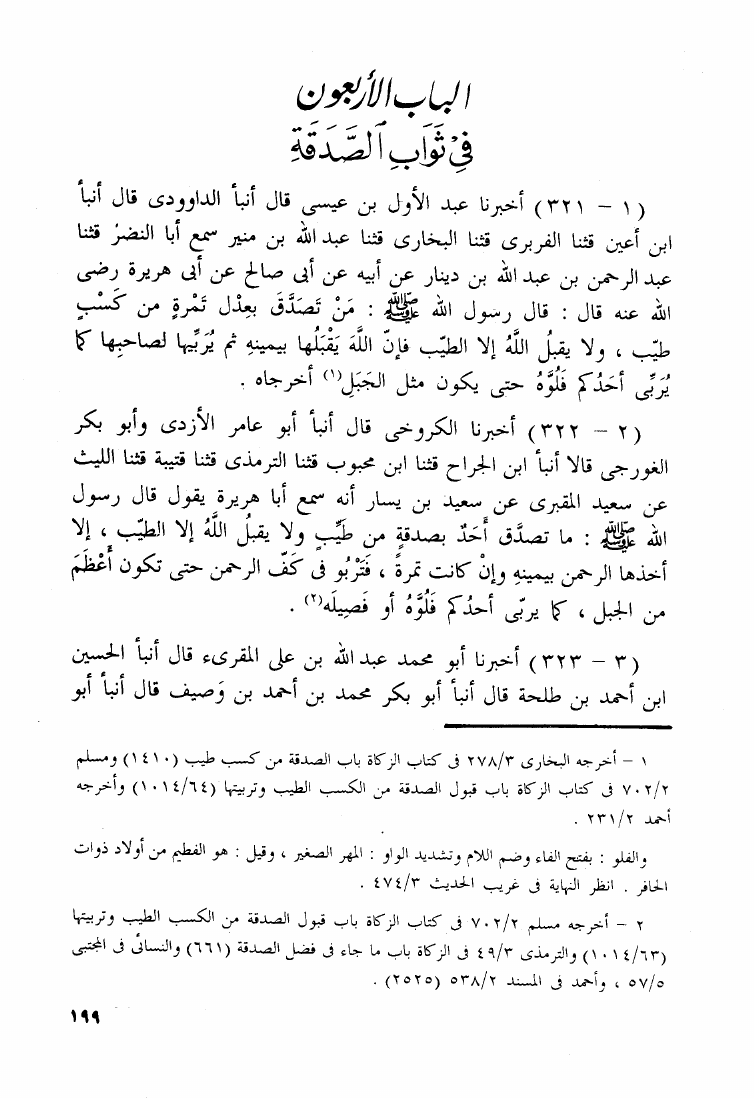 الباب الأربعون
فِي ثَوَابِ الصَّدَقَةِ
(١ – ٣٢١) أخبرنا عبد الأول بن عيسى قال أنبأ الداوودى قال أنبأ
ابن أعين قثنا الفربرى قثنا البخارى قثنا عبد الله بن منير سمع أبا النضرُ قثنا
عبد الرحمن بن عبد الله بن دينار عن أبيه عن أبى صالح عن أبى هريرة رضى
الله عنه قال : قال رسول الله ﷺ : مَنْ تَصَدَّقَ بِعِدْل تَمْرةٍ من كَسْبٍ
طيّب ، ولا يقبلُ اللَّهُ إلا الطيّب فإنّ اللَّهَ يَقْبَلُها بيمينهِ ثم يُرَبِّيها لصاحبِها كما
يُرَبِّى أحَدُكم فَلُوَّهُ حتى يكون مثل الجَبَلِ(١) أخرجاه .
(٢ – ٣٢٢) أخبرنا الكروخى قال أنبأ أبو عامر الأزدى وأبو بكر
الغورجى قالا أنبأ ابن الجراح قثنا ابن محبوب قثنا الترمذى قثنا قتيبة قثنا الليث
عن سعيد المقبرى عن سعيد بن يسار أنه سمع أبا هريرة يقول قال رسول
الله ﷺ : ما تصدَّق أَحَدٌ بصدقةٍ من طَيِّبٍ ولا يقبلُ اللَّهُ إلا الطيّب ، إلا
أخذها الرحمن بيمينهِ وإنْ كانت تمرةً ، فَتَرْبُو فى كَفّ الرحمن حتى تكون أَعْظَمَ
من الجبل ، كما يربّى أحدُكم فَلُوَّهُ أو فَصِيلَه(٢) .
(٣ – ٣٢٣) أخبرنا أبو محمد عبد الله بن على المقرىء قال أنبأ الحسين
ابن أحمد بن طلحة قال أنبأ أبو بكر محمد بن أحمد بن وَصيف قال أنبأ أبو
١ – أخرجه البخارى ٢٧٨/٣ فى كتاب الزكاة باب الصدقة من كسب طيب (١٤١٠) ومسلم
٧٠٢/٢ فى كتاب الزكاة باب قبول الصدقة من الكسب الطيب وتربيتها (١٠١٤/٦٤) وأخرجه
أحمد ٢٣١/٢ .
والفلو : بفتح الفاء وضم اللام وتشديد الواو : المهر الصغير ، وقيل : هو الفطيم من أولاد ذوات
الحافر . انظر النهاية فى غريب الحديث ٤٧٤/٣ .
٢ – أخرجه مسلم ٧٠٢/٢ فى كتاب الزكاة باب قبول الصدقة من الكسب الطيب وتربيتها
(١٠١٤/٦٣) والترمذى ٤٩/٣ فى الزكاة باب ما جاء فى فضل الصدقة (٦٦١) والنسائى فى المجتبى
٥٧/٥ ، وأحمد فى المسند ٥٣٨/٢ (٢٥٢٥) .
١٩٩